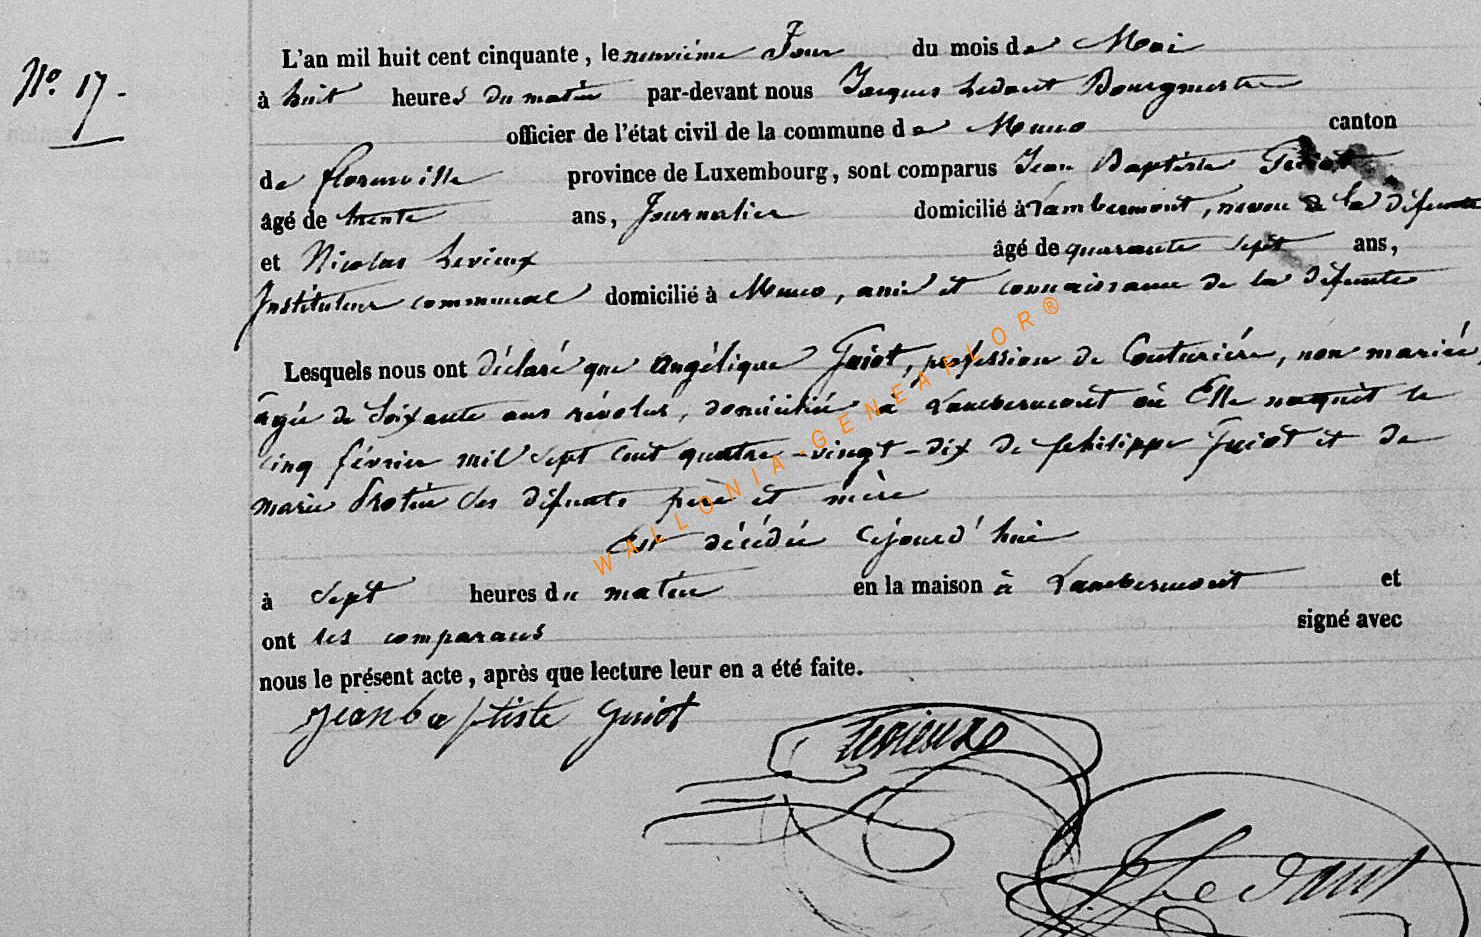 N.° 17.
L'an mil huit cent cinquante, le neuvième Jour du mois de Mai
à huit heures du matin par-devant nous Jacques Ledant Bourgmestre
officier de l'état civil de la commune de Muno canton
de florenville province de Luxembourg, sont comparus Jean Baptiste Guiot
âgé de trente ans, Journalier domicilié à Lambermont, neveu de la défunte
et Nicolas Levieux âgé de quarante sept ans,
Instituteur communal domicilié à Muno, ami et connaissance de la défunte
Lesquels nous ont déclaré que Angélique Guiot, profession de Couturière, non mariée,
âgée de Soixante ans révolus, domiciliée à Lambermont où Elle naquit le
cinq février mil sept cent quatre-vingt-dix de philippe Guiot et de
marie Protin ses défunts père et mère
Est décédée cejourd'hui
à sept heures du matin en la maison à Lambermont et
ont les comparans signé avec
nous le présent acte, après que lecture leur en a été faite.
Jeanbaptiste Guiot
Levieux
J Ledant
WALLONIA-GENEAFLOR®